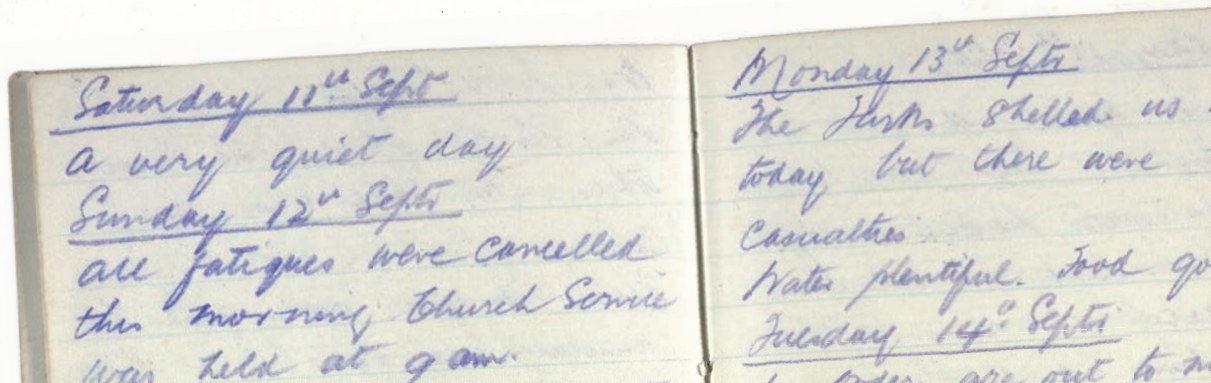 Saturday 11th Sept
a very quiet day
Sunday 12th Septr
all fatigues were cancelled
this morning Church Service
was held at 9 am.
Monday 13th Septr
The Turks Shelled us
today but there were
Casualties
Water plentiful. Food go
Tuesday 14th Septr
order are out to m